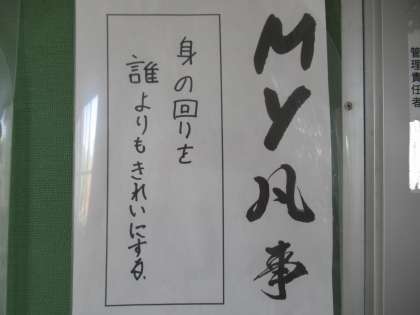 MY凡事
身の回りを
誰よりもきれいにする。
管理責任者